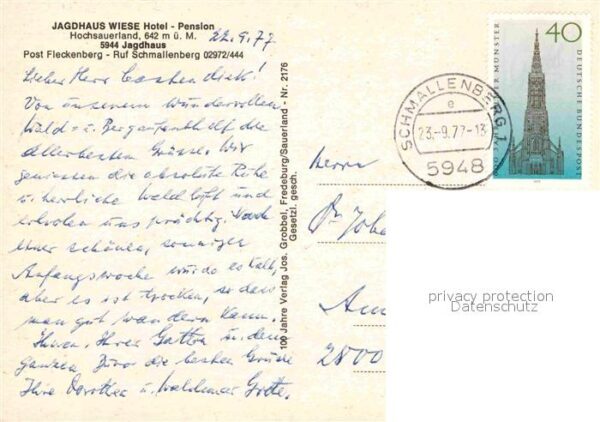 JAGDHAUS WIESE Hotel - Pension
Hochsauerland, 642 m ü. M.
5944 Jagdhaus
Post Fleckenberg - Ruf Schmallenberg 02972/444
22.9.77
Lieber Herr
Von unserem wundervollen
Wald = u. Bergaufenthalt die
allerbesten Grüsse. Wir
geniessen die absolute Ruhe
u. herrliche Waldluft und
erholen uns prächtig. Nach
einer schönen, sonnigen
Anfangswoche wurde es kalt,
aber es ist trocken, so dass
man gut wandern kann.
Ihnen, Ihrer Gattin u. dem
ganzen Büro die besten Grüsse
Ihre Dorothea u. Waldemar Grote.
100 Jahre Verlag Jos. Grobbel, Fredeburg/Sauerland - Nr. 2176
Gesetzl. gesch.
SCHMALLENBERG 1
e
23.-9.77-13
5948
40
DEUTSCHE BUNDESPOST
MÜNSTER
Herrn
Dr. Joha
Am
2800
privacy protection
Datenschutz